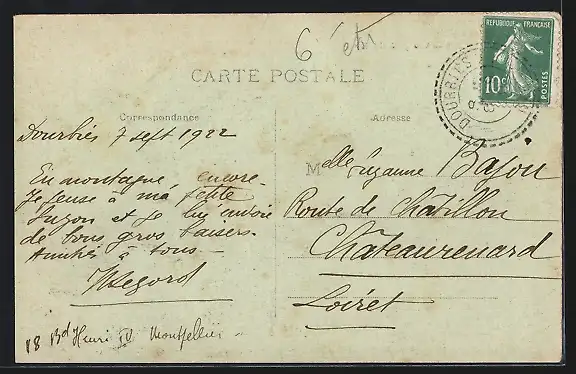 6
RÉPUBLIQUE FRANÇAISE
10c
POSTES
DOURBIES
CARTE POSTALE
Correspondance
Adresse
Dourbies 7 sept 1922
En montagne, encore.
Je pense à ma petite
Suzon et je lui envoie
de bons gros baisers.
Amitiés à tous
18 Bd Henri IV Montpellier
Melle Suzanne
Route de Châtillon
Châteaurenard
Loiret